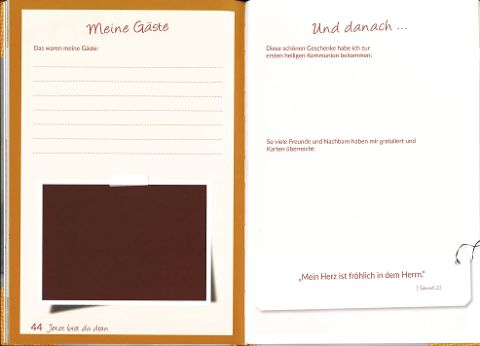 Meine Gäste
Das waren meine Gäste:
44 Jetzt bist du dran
Und danach ...
Diese schönen Geschenke habe ich zur
ersten heiligen Kommunion bekommen:
So viele Freunde und Nachbarn haben mir gratuliert und
Karten überreicht:
„Mein Herz ist fröhlich in dem Herrn.“